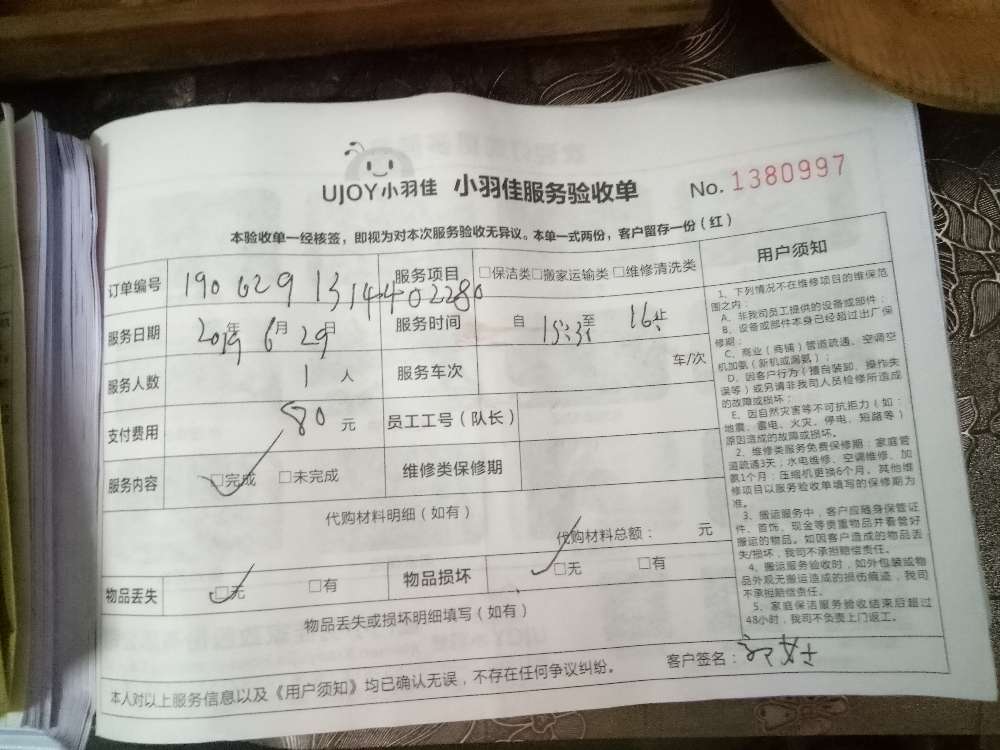 UJOY小羽佳 小羽佳服务验收单 No. 1380997
本验收单一经核签，即视为对本次服务验收无异议。本单一式两份，客户留存一份（红）
订单编号 1906291314402280 服务项目 □保洁类□搬家运输类□维修清洗类
服务日期 2019年6月29日 服务时间 自 15:35至 16止
服务人数 1 人 服务车次 车/次
支付费用 80 元 员工工号（队长）
服务内容 □完成 □未完成 维修类保修期
代购材料明细（如有）
代购材料总额： 元
物品丢失 □无 □有 物品损坏 □无 □有
物品丢失或损坏明细填写（如有）
本人对以上服务信息以及《用户须知》均已确认无误，不存在任何争议纠纷。 客户签名：
用户须知
1、下列情况不在维修项目的维保范
围之内：
A、非我司员工提供的设备或部件；
B、设备或部件本身已经超过出厂保
修期；
C、商业（商铺）管道疏通、空调空
机加氨（新机或漏氨）；
D、因客户行为（擅自装卸、操作失
误等）或另请非我司人员检修所造成
的故障或损坏；
E、因自然灾害等不可抗拒力（如：
地震、雷电、火灾、停电、短路等）
原因造成的故障或损坏。
2、维修类服务免费保修期：家庭管
道疏通3天；水电维修、空调维修、加
氨1个月；压缩机更换6个月。其他维
修项目以服务验收单填写的保修期为
准。
3、搬运服务中，客户应随身保管证
件、首饰、现金等贵重物品并看管好
搬运的物品。如因客户造成的物品丢
失/损坏，我司不承担赔偿责任。
4、搬运服务验收时，如外包装或物
品外观无搬运造成的损伤痕迹，我司
不承担赔偿责任。
5、家庭保洁服务验收结束后超过
48小时，我司不负责上门返工。